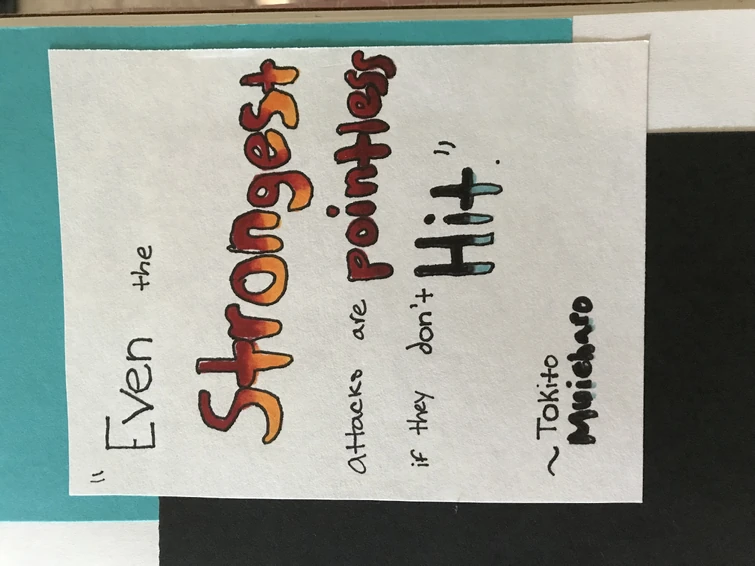 "Even the
Strongest
attacks are pointless
if they don't Hit".
~Tokito
Muichiro